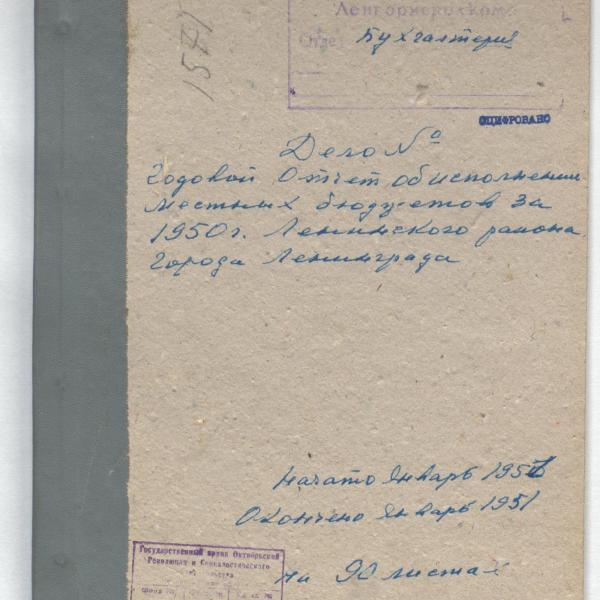 1581
Ленгорисполком
Отдел Бухгалтерия
ОЦИФРОВАНО
Дело №
Годовой Отчет об исполнении
местных бюджетов за
1950 г. Ленинского района
города Ленинграда
Начато Январь 1951
Окончено Январь 1951
на 90 листах
Государственный архив Октябрьской
Революции и Социалистического